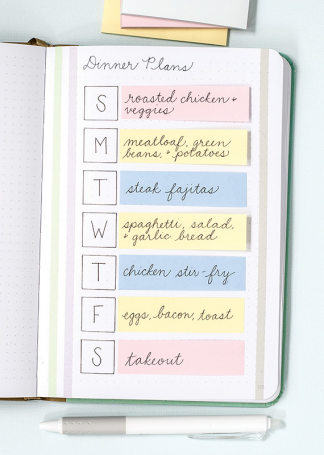 Dinner Plans
S
roasted chicken +
veggies
M
meatloaf, green
beans, + potatoes
T
steak fajitas
W
spaghetti, salad,
+ garlic bread
T
chicken stir-fry
F
eggs, bacon, toast
S
takeout